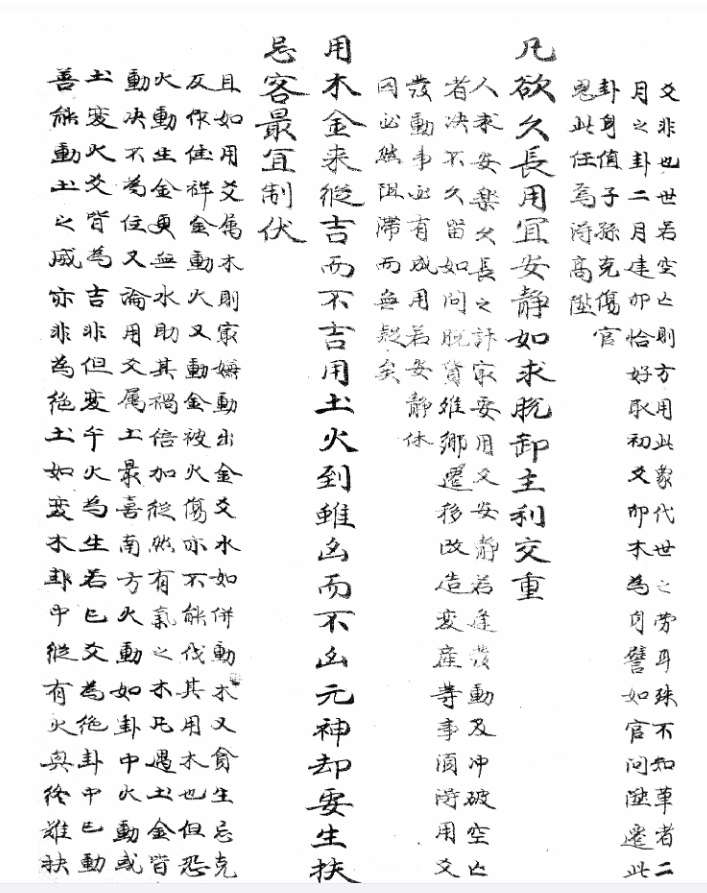 爻非也世若空亡則方用此象代世之勞耳殊不知葷者二
月之卦二月建卯恰好取初爻卯木為身譬如官問陞遷此
卦身值子孫克傷官
鬼此任焉淂高陞
凡欲久長用宜安静如求脱卸主利交重
人求安樂久長之計家要用爻安静若逢發動及冲破空亡
者决不久留如問脱貨離鄉遷移改造変産等事須淂用爻
發動事必有成用若安静休
囚必然阻滞而無疑矣
用木金来縱吉而不吉用土火到雖凶而不凶元神却要生扶
忌客最宜制伏
且如用爻属木則家嫌動出金爻水如併動木又貪生忌克
反作佳祥金動火又動金被火傷亦不能伐其用木也但恐
火動生金更無水助其禍倍加縱然有氣之木凡遇土金皆
動决不為佳又論用爻属土最喜南方火動如卦中火動或
土変火爻皆為吉非但変午火為生若巳爻為絶卦中巳動
善能動土之威亦非為絶土如変木卦中縱有火與終難扶